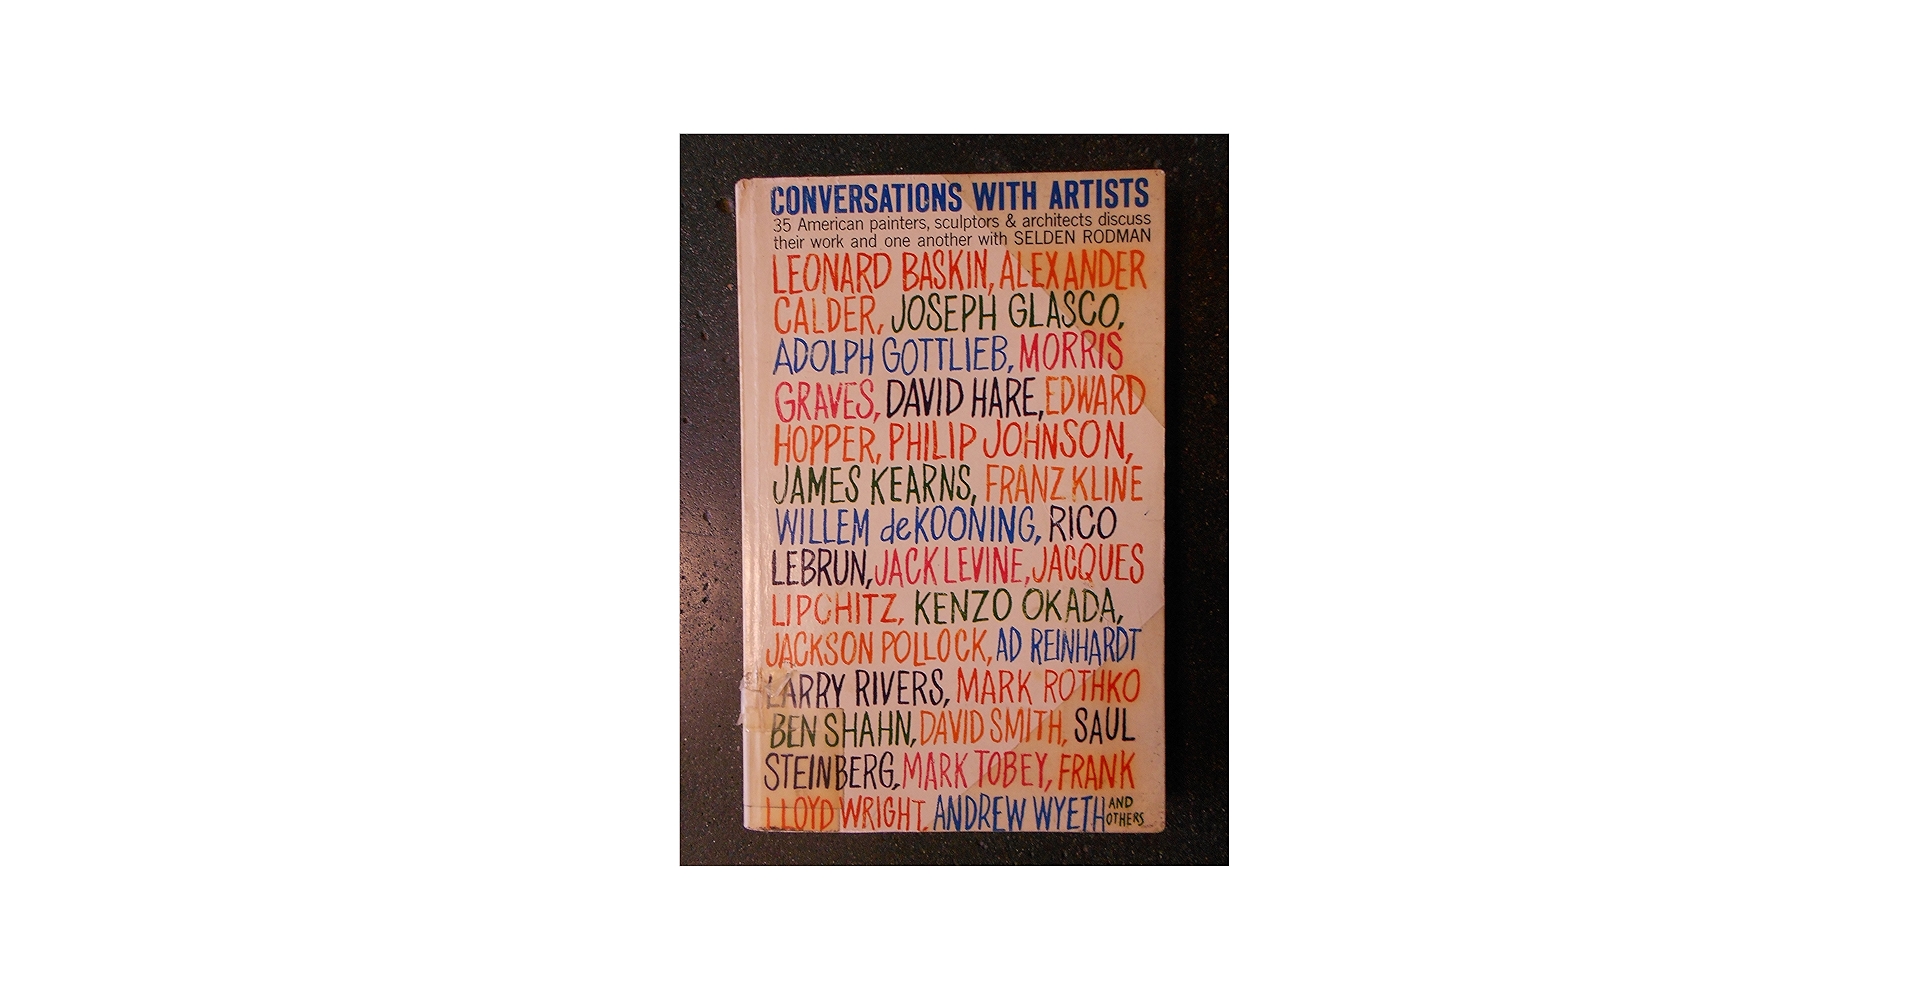 CONVERSATIONS WITH ARTISTS
35 American painters, sculptors & architects discuss
their work and one another with SELDEN RODMAN
LEONARD BASKIN, ALEXANDER
CALDER, JOSEPH GLASCO,
ADOLPH GOTTLIEB, MORRIS
GRAVES, DAVID HARE, EDWARD
HOPPER, PHILIP JOHNSON,
JAMES KEARNS, FRANZ KLINE
WILLEM deKOONING, RICO
LEBRUN, JACK LEVINE, JACQUES
LIPCHITZ, KENZO OKADA,
JACKSON POLLOCK, AD REINHARDT
LARRY RIVERS, MARK ROTHKO
BEN SHAHN, DAVID SMITH, SAUL
STEINBERG, MARK TOBEY, FRANK
LLOYD WRIGHT, ANDREW WYETH AND
OTHERS